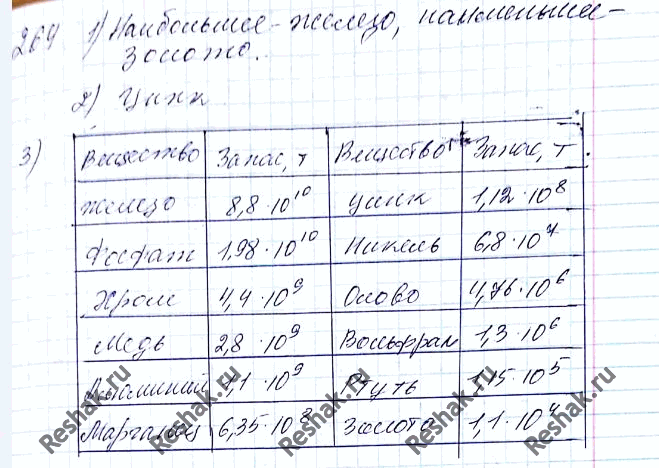 264 1) Наибольшее - железо, наименьшее -
золото.
2) Цинк
3)
Вещество Запас, т Вещество Запас, т
железо 8,8·10¹⁰ цинк 1,12·10⁸
Фосфат 1,98·10¹⁰ Никель 6,8·10⁷
Хром 4,4·10⁹ Олово 4,76·10⁶
Медь 2,8·10⁹ Вольфрам 1,3·10⁶
Алюминий 1,1·10⁹ Ртуть 1,15·10⁵
Марганец 6,35·10⁸ Золото 1,1·10⁴
Reshak.ru Reshak.ru Reshak.ru Reshak.ru Reshak.ru